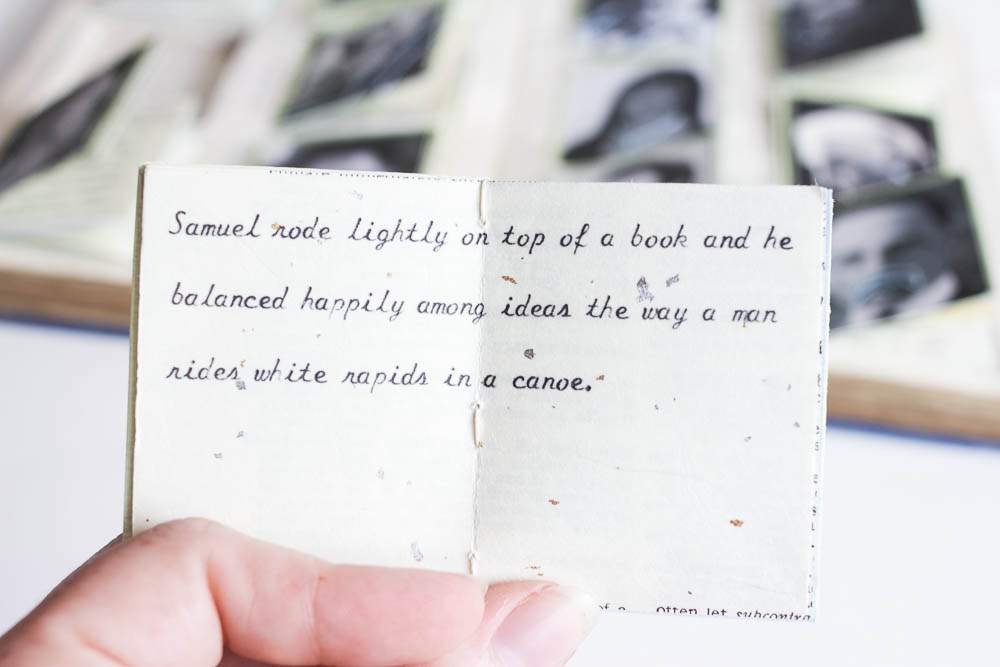 Samuel rode lightly on top of a book and he
balanced happily among ideas the way a man
rides white rapids in a canoe.
of a often let subcontra